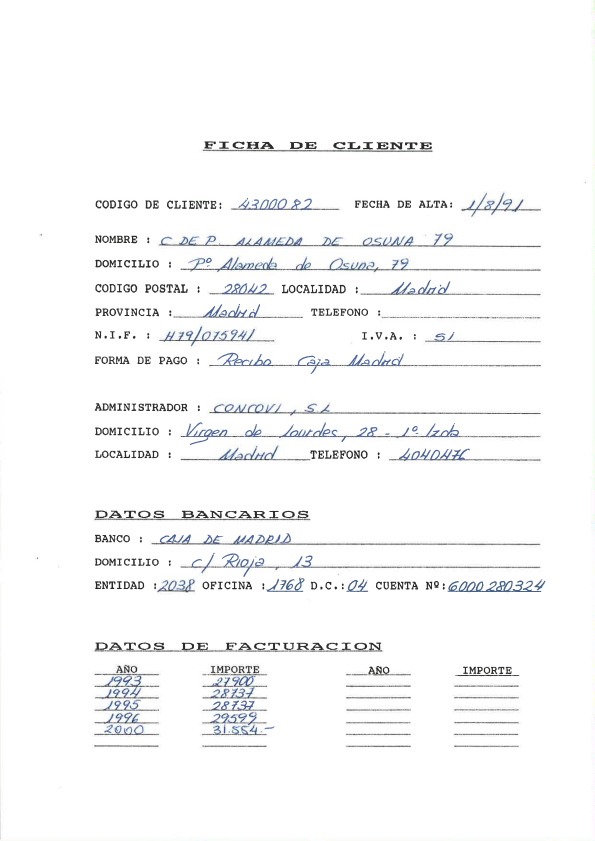 FICHA DE CLIENTE
CODIGO DE CLIENTE: 4300082 FECHA DE ALTA: 1/8/91
NOMBRE : C DE P. ALAMEDA DE OSUNA 79
DOMICILIO : Pº Alameda de Osuna, 79
CODIGO POSTAL : 28042 LOCALIDAD : Madrid
PROVINCIA : Madrid TELEFONO :
N.I.F. : H79/075941 I.V.A. : SI
FORMA DE PAGO : Recibo Caja Madrid
ADMINISTRADOR : CONCOVI, S L
DOMICILIO : Virgen de Lourdes, 28 - 1º Izda
LOCALIDAD : Madrid TELEFONO : 4040476
DATOS BANCARIOS
BANCO : CAJA DE MADRID
DOMICILIO : c/ Rioja, 13
ENTIDAD : 2038 OFICINA : 1768 D.C.: 04 CUENTA Nº: 6000280324
DATOS DE FACTURACION
AÑO IMPORTE AÑO IMPORTE
1993 27900
1994 28737
1995 28737
1996 29599
2000 31.554.-